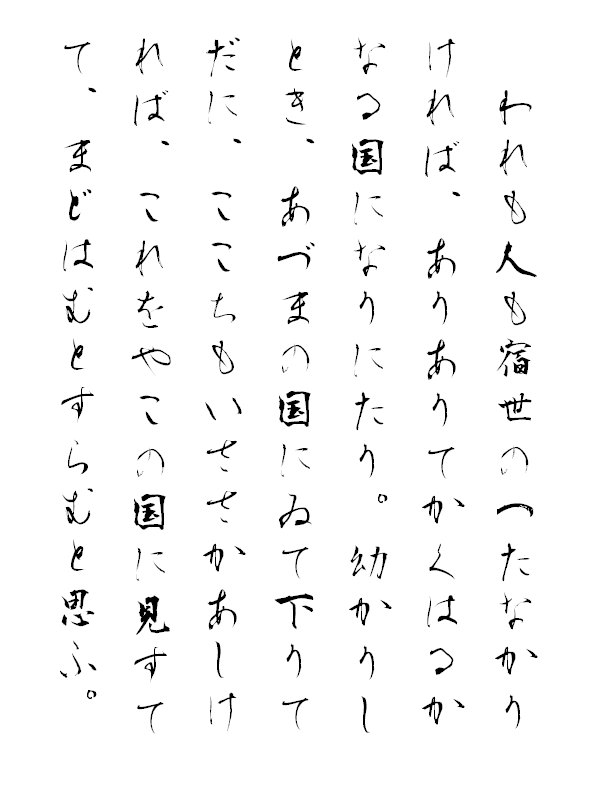 われも人も宿世のつたなかり
ければ、ありありてかくはるか
なる国になりにたり。幼かりし
とき、あづまの国にゐて下りて
だに、ここちもいささかあしけ
れば、これをやこの国に見すて
て、まどはむとすらむと思ふ。